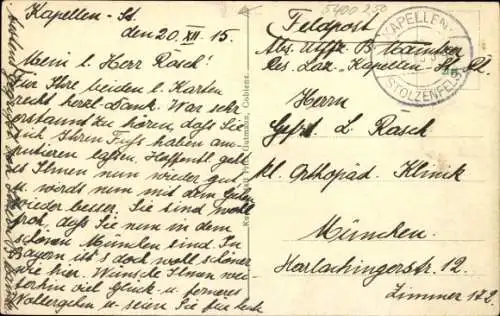 Kapellen - St.
den 20. XII. 15.
Mein l. Herr Rasch!
Für Ihre beiden l. Karten
recht herzl. Dank. War sehr
erstaunt zu hören, daß Sie
sich Ihren Fuß haben am-
putieren laßen. Hoffentl. geht
es Ihnen nun wieder gut
u. wirds nun mit dem
wieder besser. Sie sind wohl
froh, daß Sie nun in dem
schönen München sind. In
Bayern ist's doch wohl schöner
wie hier. Wünsche Ihnen wei-
terhin viel Glück u. ferneres
Wollergehen u. seien Sie für heute
5400 250
Feldpost
Abs. Uffz. B.
Res. Laz. Kapellen St.
KAPELLEN-
STOLZENFELS
Herrn
Gefrt. L. Rasch
Kl. Orthopäd. Klinik
München.
Harlachingerstr. 12.
Zimmer 172.
Gutmann, Coblenz.